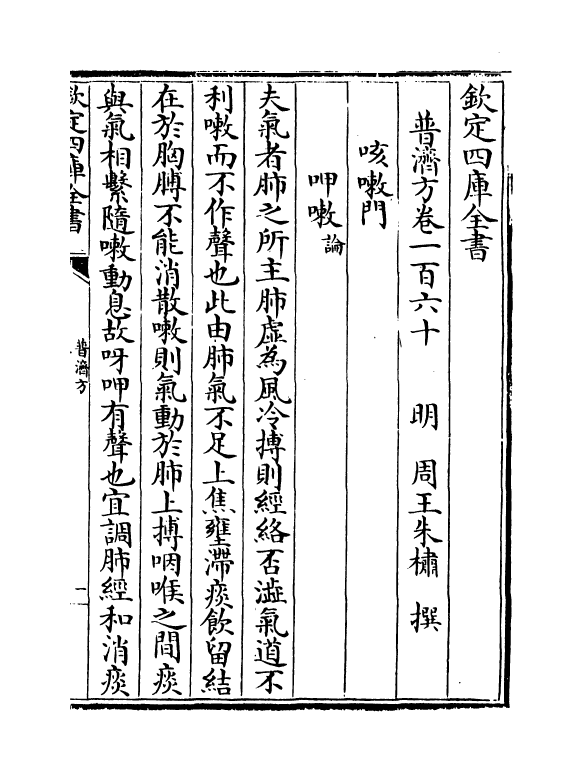 欽定四庫全書
普濟方卷一百六十　明　周王朱橚　撰
咳嗽門
呷嗽論
夫氣者肺之所主肺虛為風冷搏則經絡否澁氣道不
利嗽而不作聲也此由肺氣不足上焦壅滯痰飲留結
在於胸膊不能消散嗽則氣動於肺上搏咽喉之間痰
與氣相繫隨嗽動息故呀呷有聲也宜調肺經和消痰
欽定四庫全書
普濟方